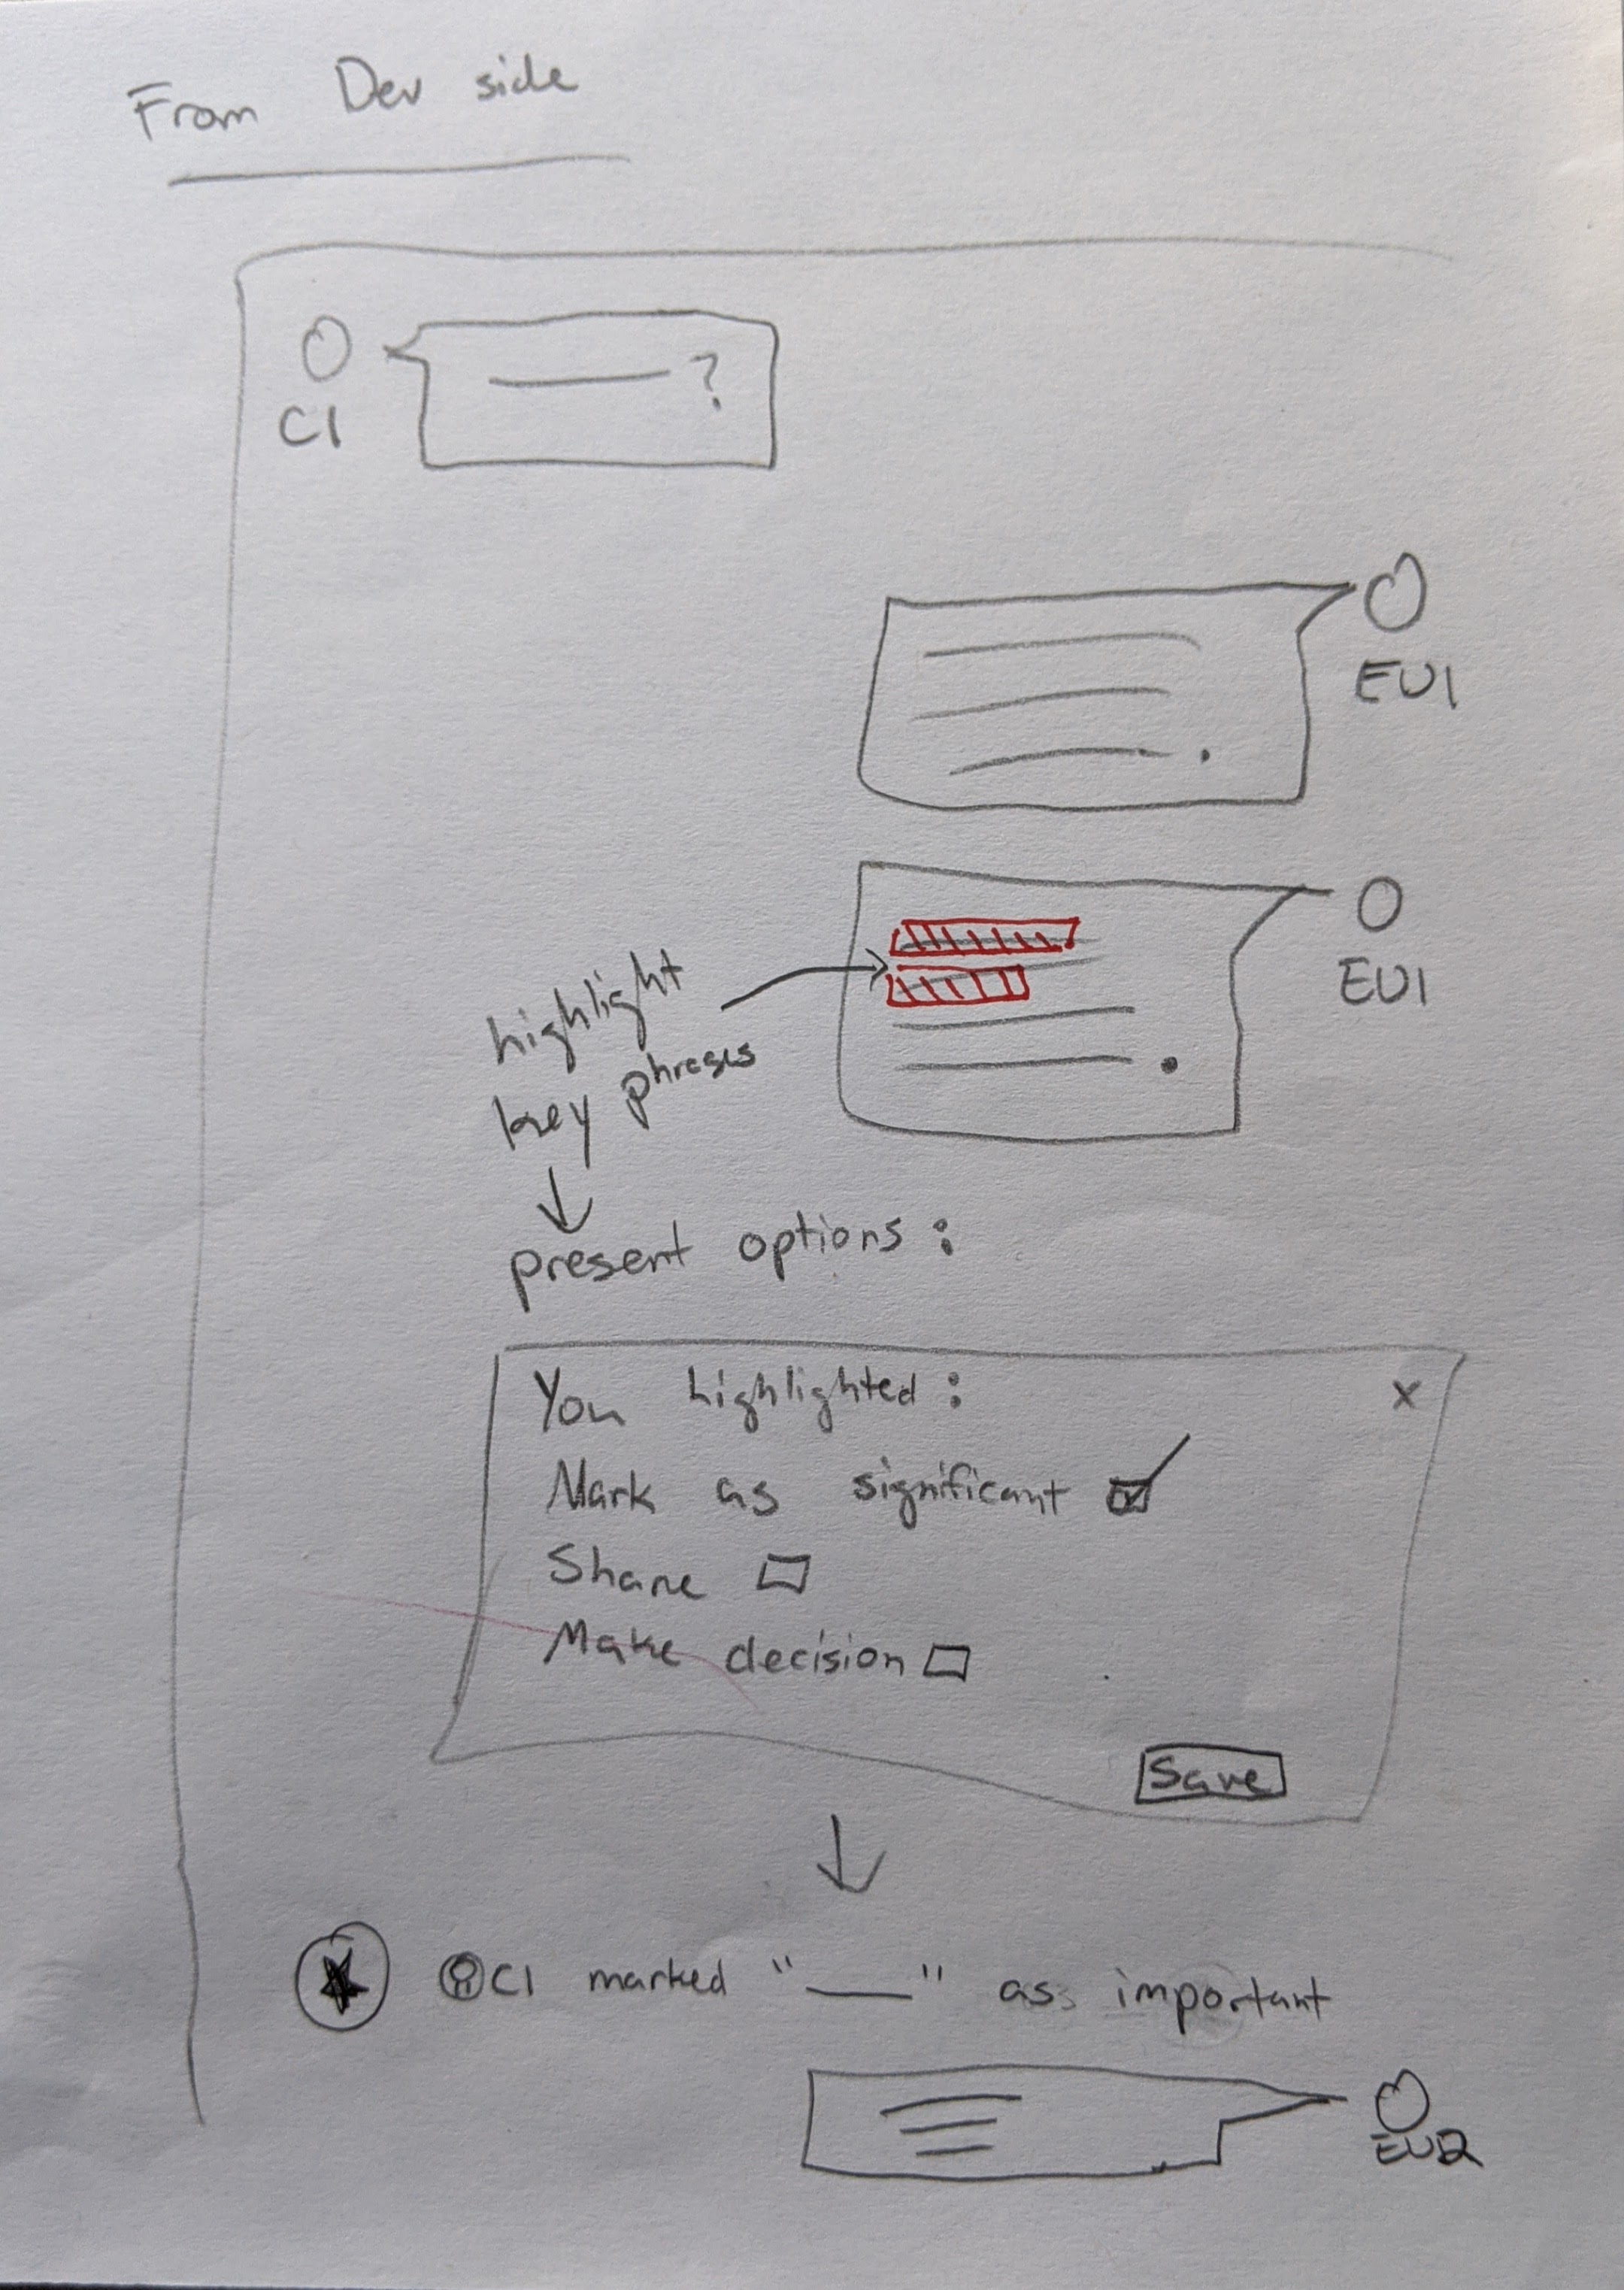 From Dev side
?
C1
EU1
EU1
highlight
key phrases
present options:
You highlighted: x
Mark as significant
Share
Make decision
Save
C1 marked "—" as important
EU2